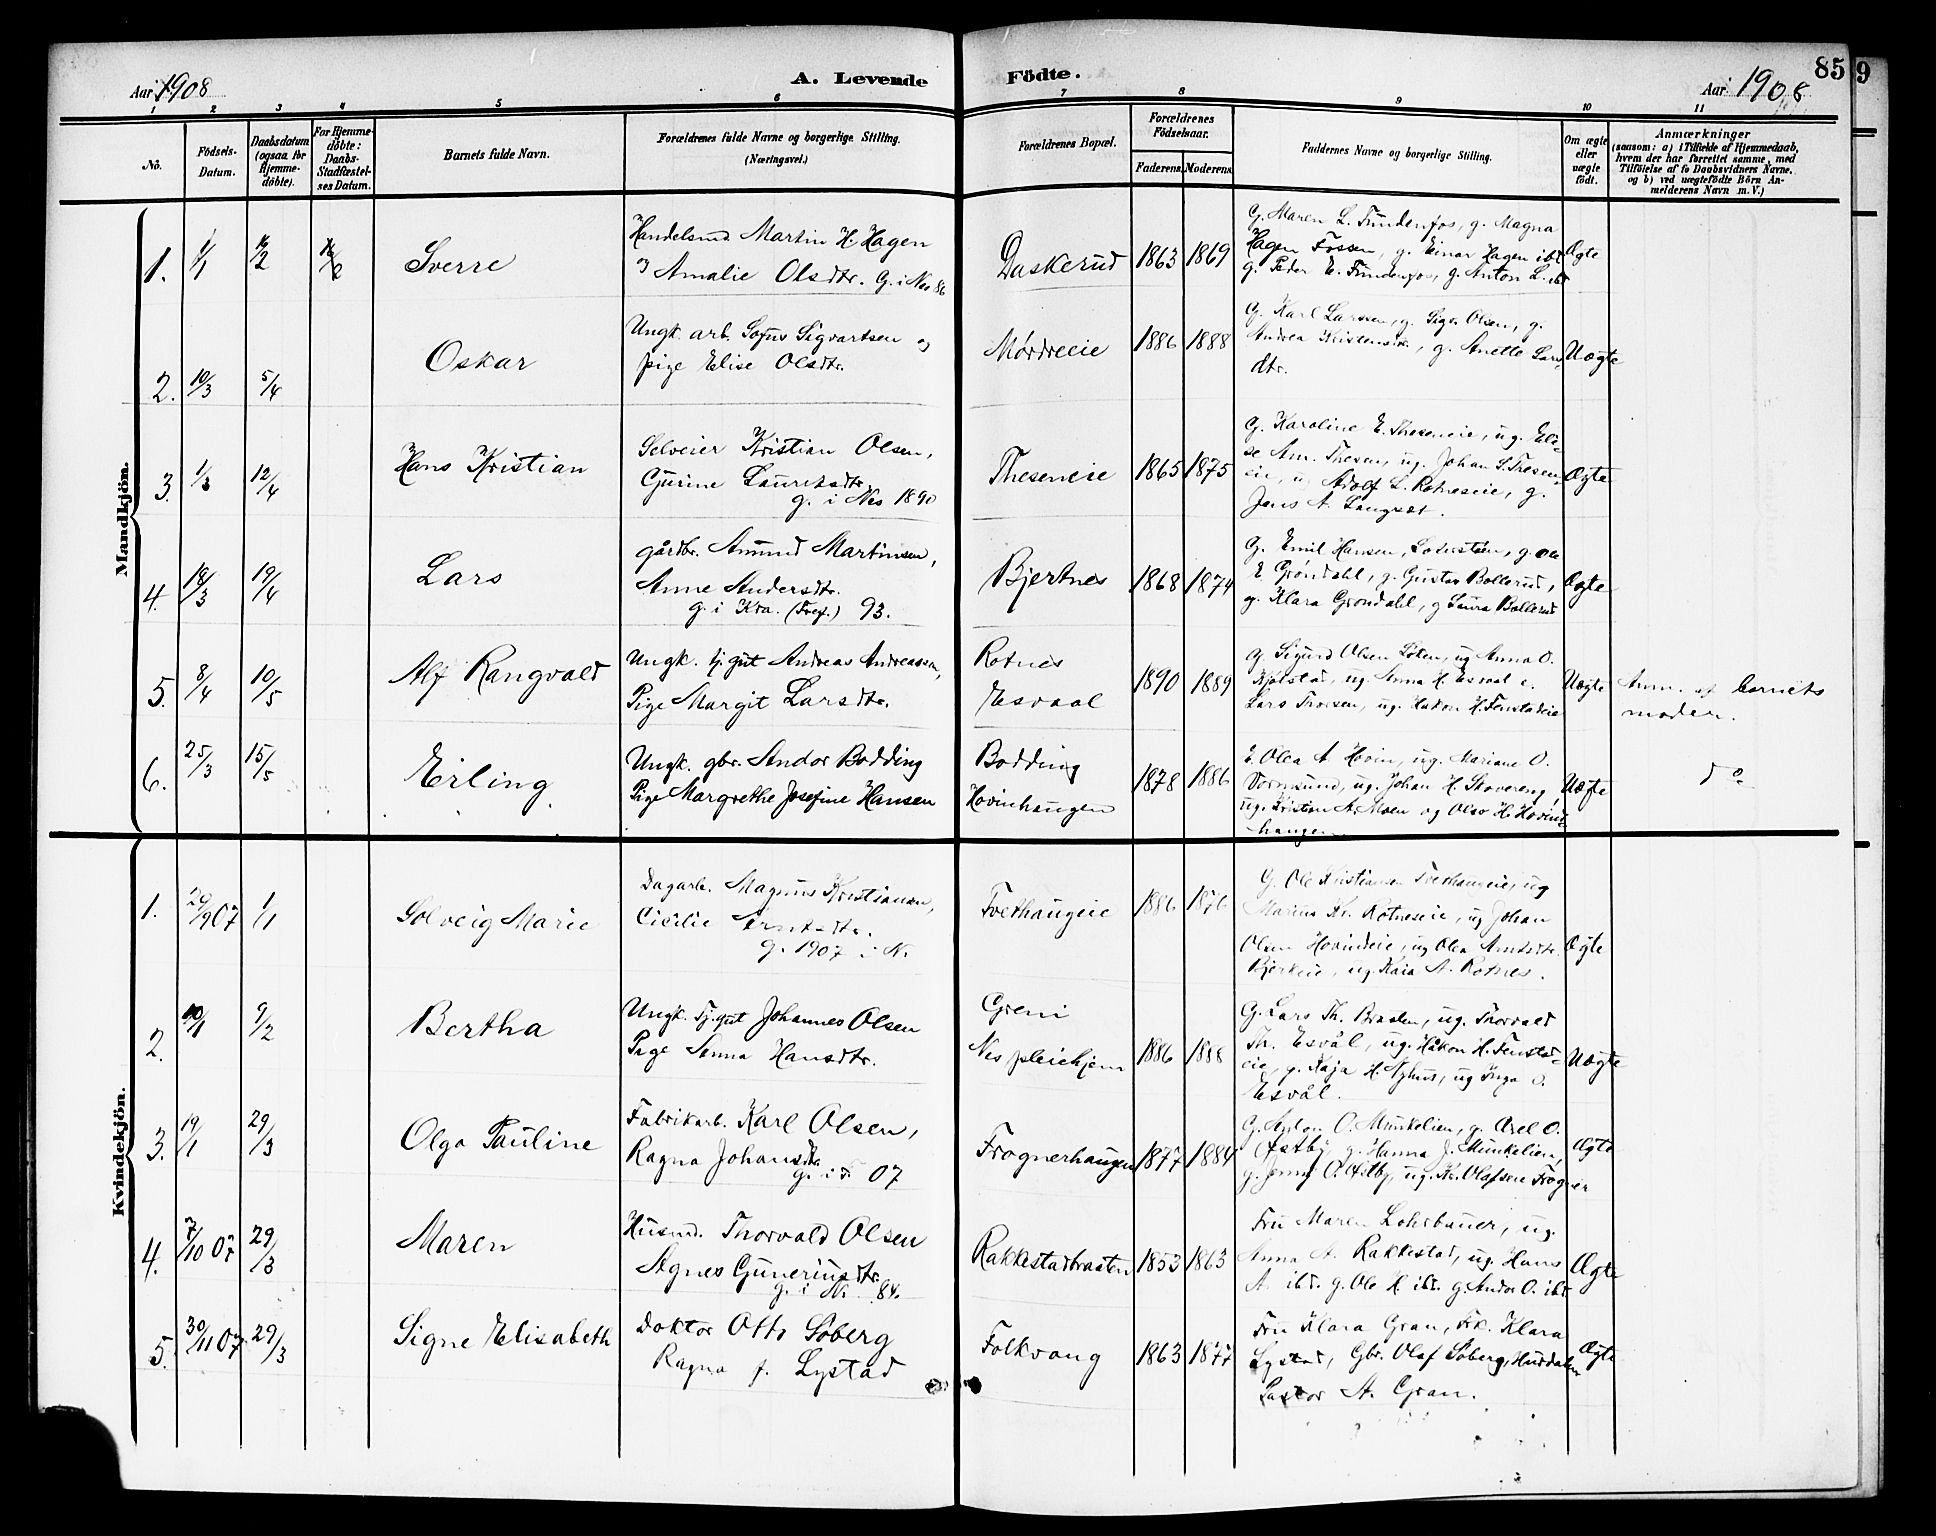 Aar 1908
A. Levende
Födte.
Aar 1908
85
9
1 2 3 4 5 6 7 8 9 10 11
Nö.
Födsels-
Datum.
Daabsdatum
(ogsaa for
Hjemme-
döbte).
For Hjemme-
döbte:
Daabs-
Stadfæstel-
ses Datum.
Barnets fulde Navn.
Forældrenes fulde Navne og borgerlige Stilling.
(Næringsvei.)
Forældrenes Bopæl.
Forældrenes
Födselsaar.
Faderens. Moderens.
Faddernes Navne og borgerlige Stilling.
Om ægte
eller
uægte
födt.
Anmærkninger
(saasom: a) i Tilfælde af Hjemmedaab,
hvem der har forrettet samme, med
Tilföielse af to Daabsvidners Navne,
og b) ved uægtefödte Börn An-
melderens Navn m. V.)
Mandkjön.
1. 1/1 16/2 Sverre
Handelsmd Martin H. Hagen
Amalie Olsdtr. G. i Nes 86
Daskerud 1863 1869
G. Maren L. Funderfos, g. Magna
Hagen Fossen, g. Einar Hagen ibd
g. Peder E. Funderfos, g. Anton L. ibd
Ægte
2. 10/3 5/4 Oskar
Ungk. arb. Sofus Sigvartsen og
pige Elise Olsdtr.
Mørdreeie 1886 1888
G. Karl Larssen, g. Sigv. Olsen, g.
Andrea Kristensdr., g. Anette Lars-
dtr.
Uægte
3. 1/3 12/4 Hans Kristian
Selveier Kristian Olsen,
Gurine Lauritsdtr.
g. i Nes 1890
Theseneie 1865 1875
G. Karoline E. Theseneie, ug. Eli-
se Am. Thesen, ug. Johan S. Thesen-
eie, u Adolf L. Rotneseie, g.
Jens A. Langset.
Ægte
4. 18/3 19/4 Lars
gårdbr. Amund Martinsen,
Anne Andersdtr.
g. i Kra. (Tref.) 93.
Bjertnes 1868 1874
G. Emil Hansen, g.
E. Grøndahl, g. Gustav Bollerud,
g. Klara Grøndahl, g Laura Bollerud
Ægte
5. 8/4 10/5 Alf Rangvald
Ungk. tj.gut Andreas Andreassen,
Pige Margit Larsdtr.
Rotnes
Esvaal
1890 1889
G. Sigurd Olsen Løken, ug Anna O.
ug. Anna H. Esvaal e.
Lars ug. Hakon H. Fenstadeie
Uægte
Anm. af barnets
moder.
6. 25/3 15/5 Erling
Ungk. gbr. Andor Bodding
Pige Margrethe Josefine Hansen
Bodding
Hovinhaugen
1878 1886
E. Olea A Hovin, ug. Mariane O.
Vormsund, ug. Johan H. Skovereng,
ug. Kristian A. Moen og Olav H. Hovin-
haugen
Uægte
do
Kvindekjön.
1. 29/9 07 1/1 Solveig Marie
Dagarb. Magnus Kristiansen,
Cicilie Arntsdtr.
g. 1907 i N.
Tvethaugeie 1886 1876
G. Ole Kristiansen Tvethaugeie, ug
Marius Kr. Rotneseie, ug Johan
Olsen Hovindeie, ug Olea Arntsdtr.
Bjerkeie, ug. Kaia A. Rotnes.
Ægte
2. 10/1 9/2 Bertha
Ungk. Tj.gut Johannes Olsen
Pige Anna Hansdtr.
Greni
Nes pleiehjem
1886 1888
G. Lars Th. Braaten, ug. Thorvald
Th. Esvål, ug. Håkon H. Fenstad-
eie, g. Kaja H. Nyhus, ug Inga O.
Esvål.
Uægte
3. 19/1 29/3 Olga Pauline
Fabrikarb. Karl Olsen,
Ragna Johansdtr.
g. i F. 07
Frognerhaugen 1877 1884
G. Anton O. Munkelien, g. Axel O.
Østby, g. Hanna J. Munkelien,
g. Jenny O. Østby, ug. Kr. Olafsen Frogner
Ægte
4. 7/10 07 29/3 Maren
Husmd. Thorvald Olsen
Agnes Guneriusdtr.
g. i N. 84.
Rakkestadbraaten 1853 1863
Fru Maren Lohrbauer, ug.
Anna A. Rakkestad, ug. Hans
A. ibd. g. Ole H. ibd. g. Andor O. ibd.
Ægte
5. 30/11 07 29/3 Signe Elisabeth
Doktor Otto Søberg
Ragna f. Lystad
Folkvang 1863 1877
Fru Klara Gran, Frk. Klara
Lystad, Gbr. Olaf Søberg, Hurdalen
Pastor A. Gran.
Ægte